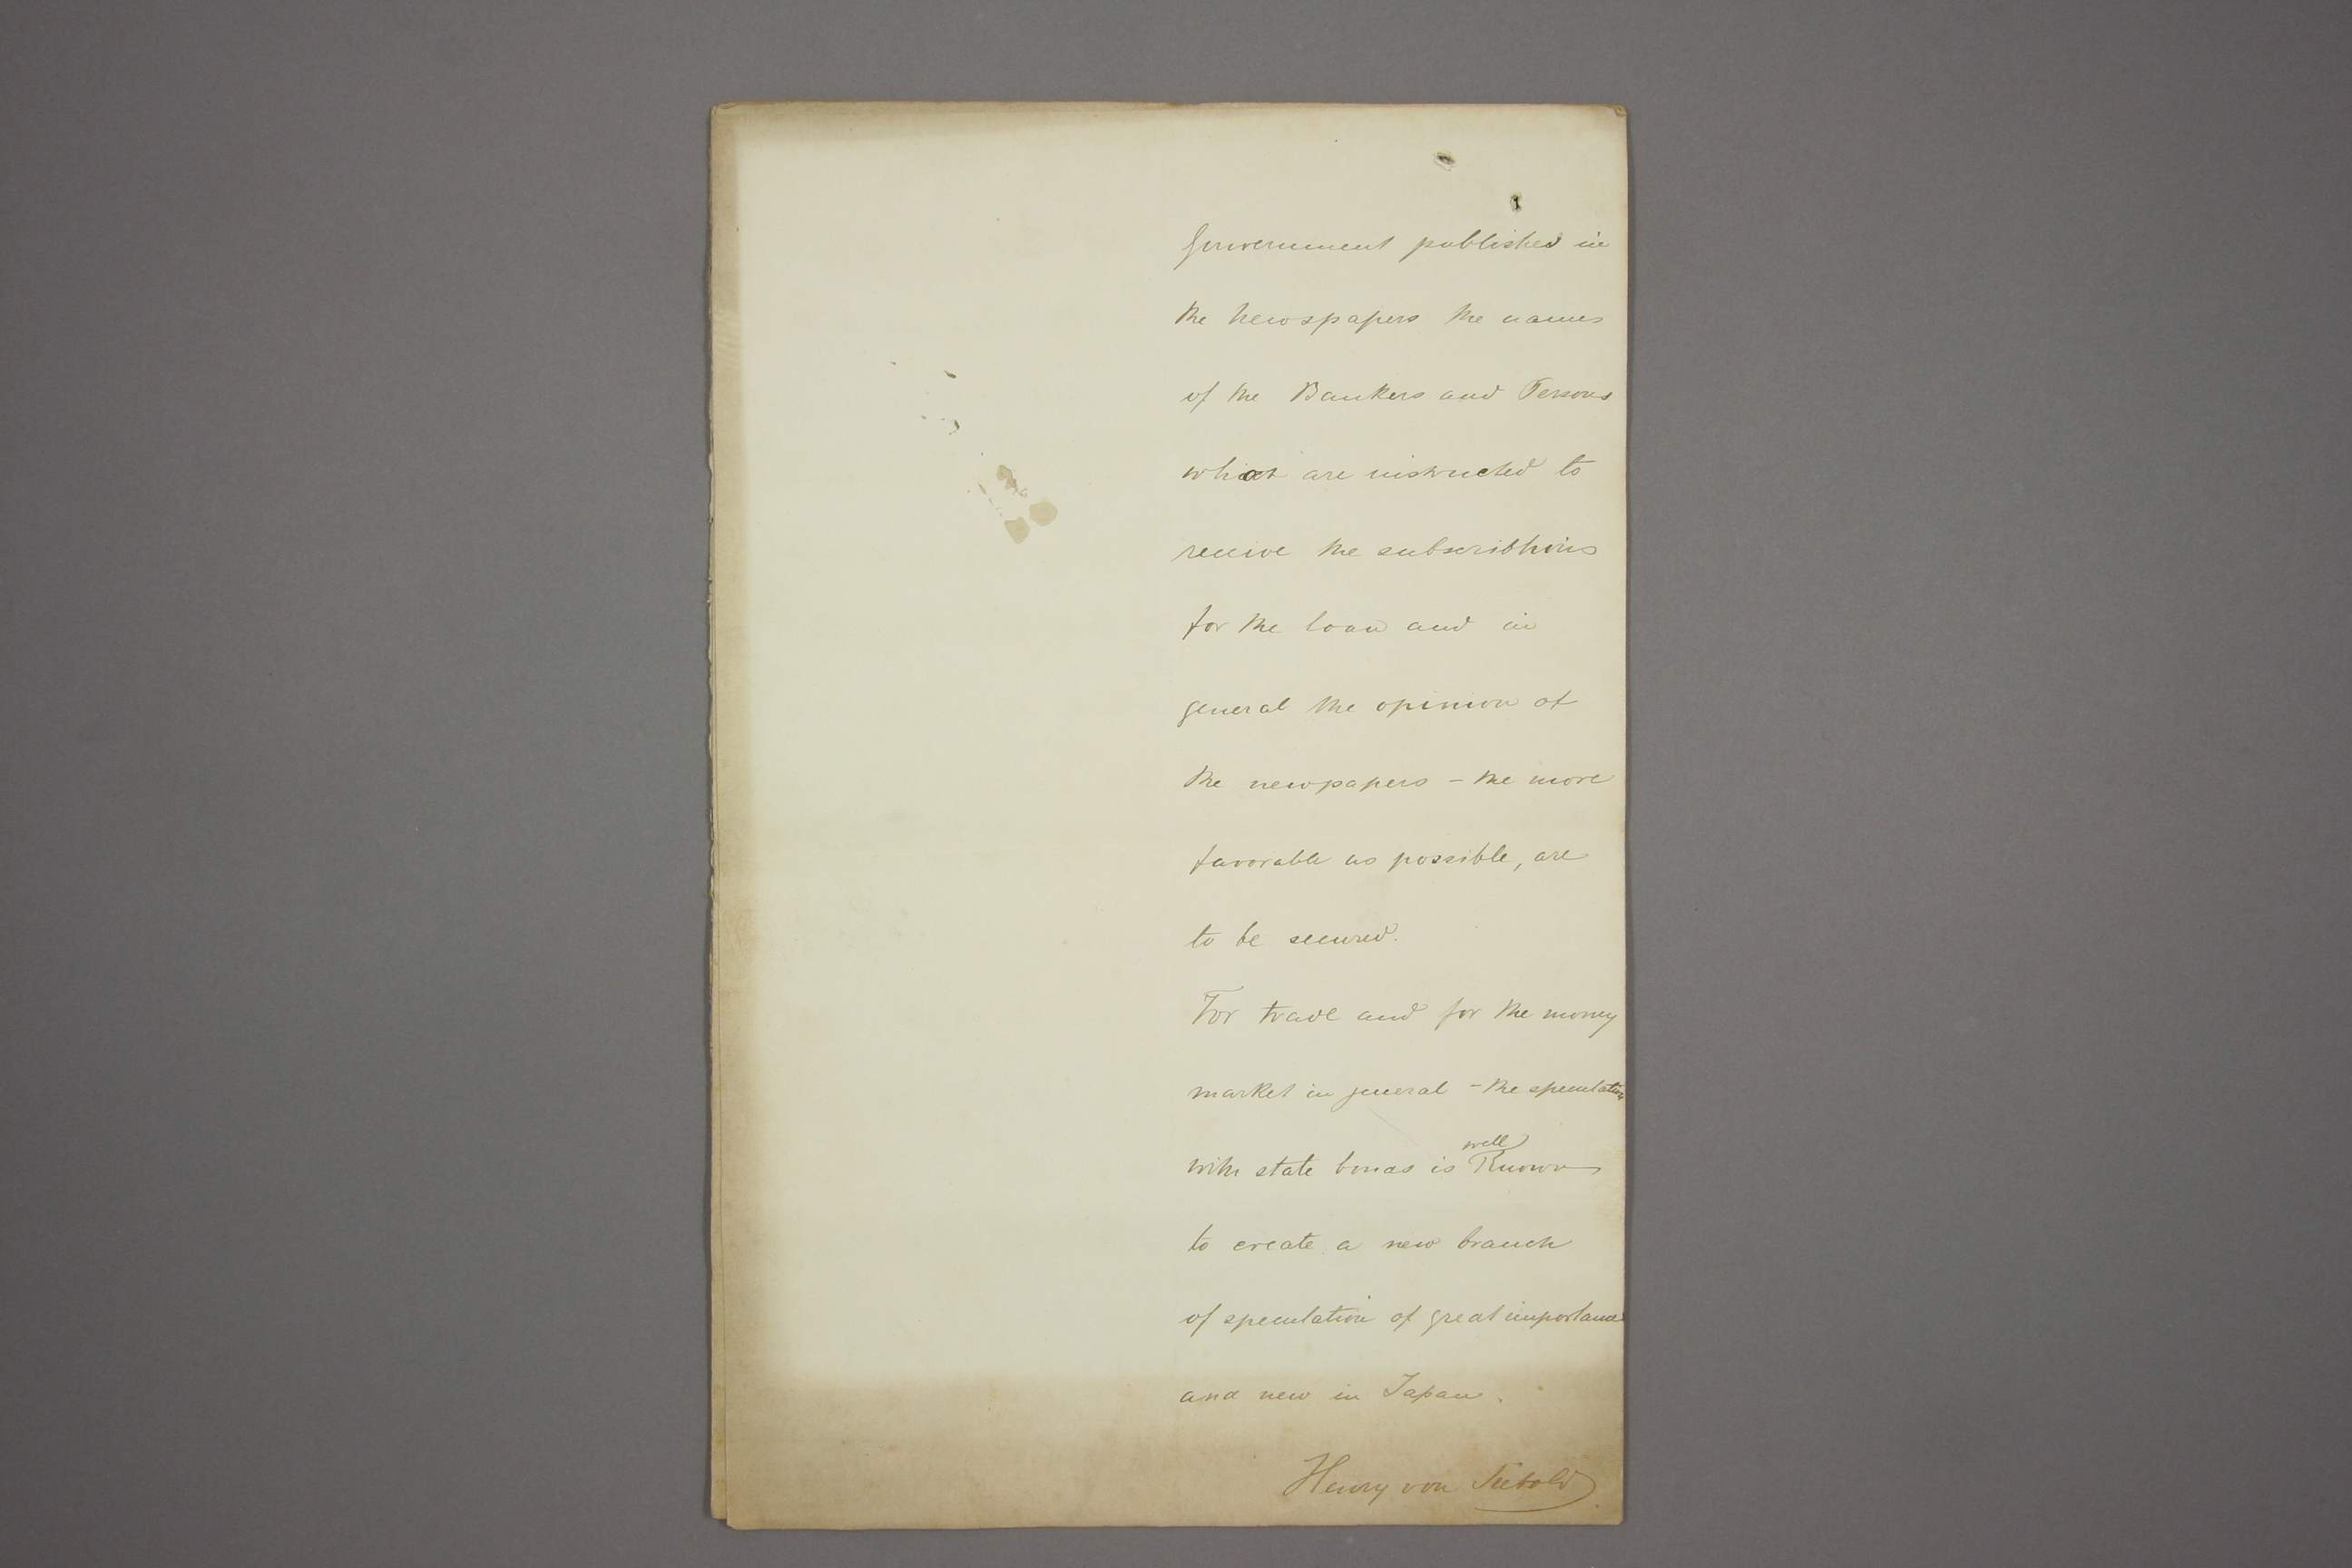 Gouvernment published in
the newspapers the names
of the Bankers and Persons
what are instructed to
receive the subscribtions
for the loan and in
general the opinion of
the newpapers – the more
favorable as possible, are
to be secured.
For trade and for the money
market in general – the speculation
with state bonds is well Known
to create a new branch
of speculation of great importance
and new in Japan.
Henry von Siebold